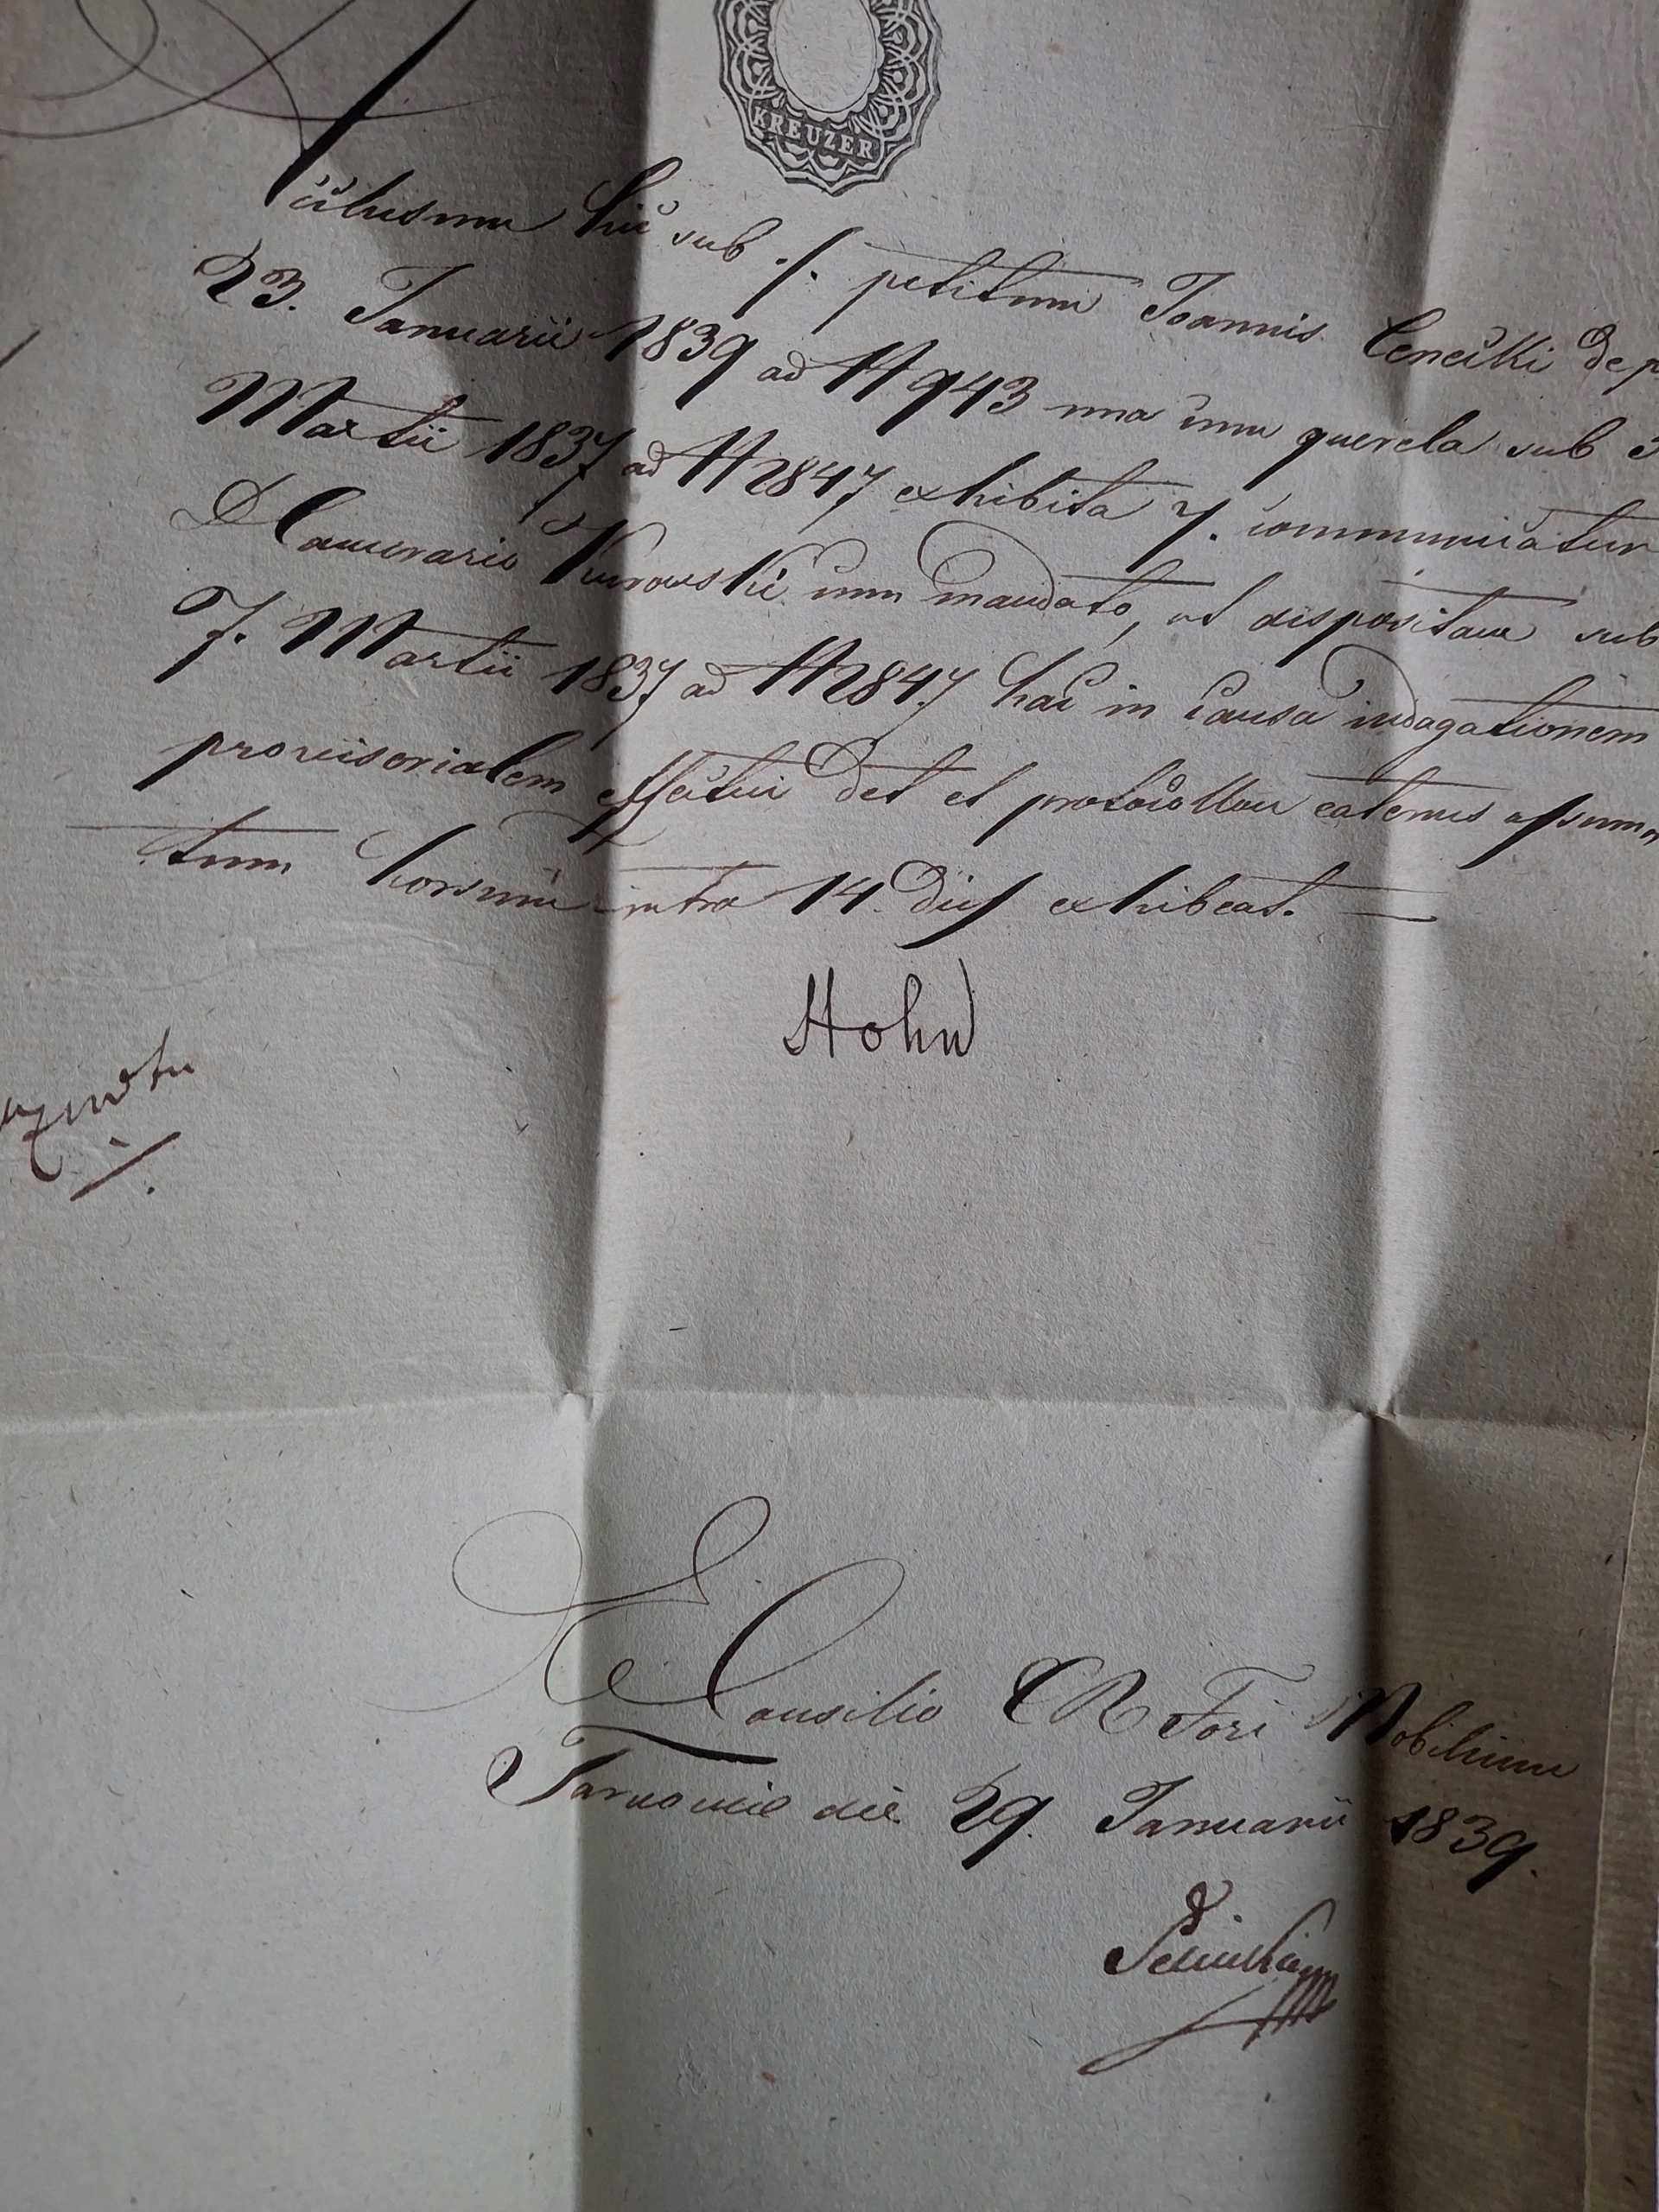 KREUZER
hic sub ./. petitum Joannis
23. Januarii 1839 ad N 943 una cum querela sub 3
Martii 1837 ad N 2847 exhibita communicatur
D Camerario Kurowski cum mandato, ut dispositam sub
7. Martii 1837 ad N 2847 hac in Causa indagationem
provisorialem effectui det et protocollon eatenus assum
tum horsum intra 14 dies exhibeat.
Hohn
E Consilio CR Fori Nobilium
Tarnoviae die 29. Januarii 1839.